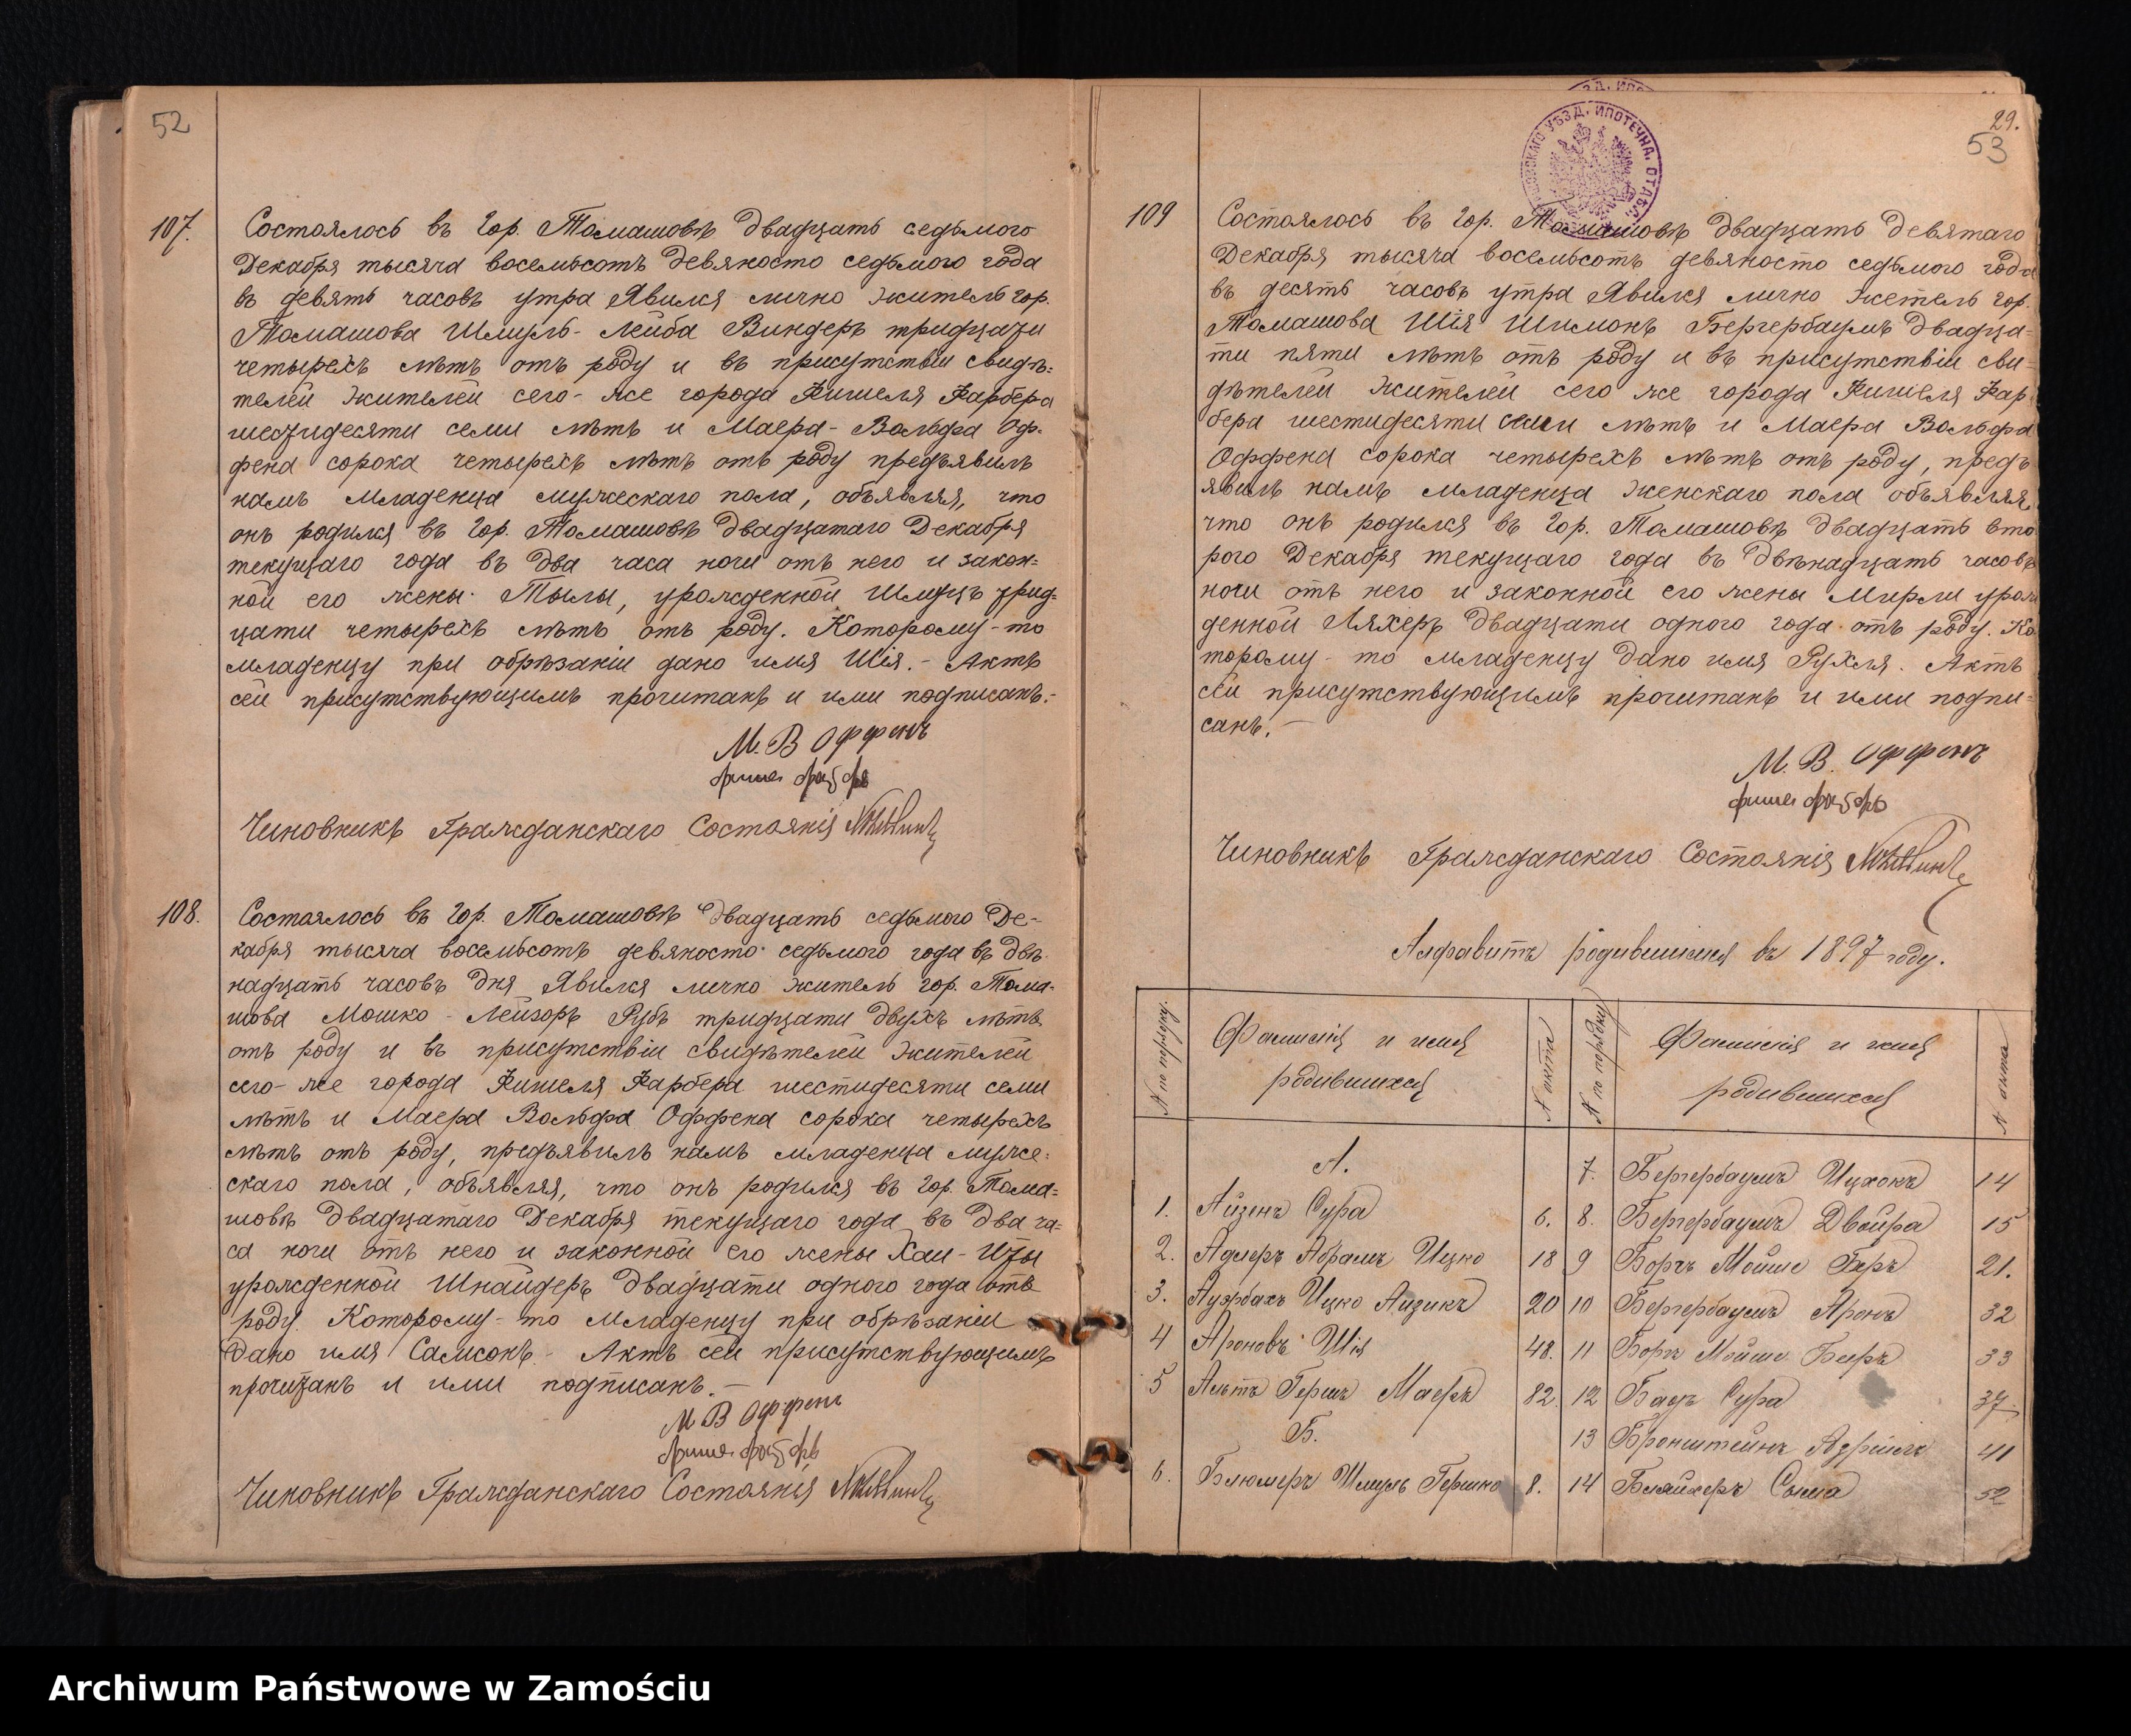 52
107.
Состоялось въ гор. Томашовѣ двадцать седьмого
Декабря тысяча восемьсотъ девяносто седьмого года
въ девять часовъ утра Явился лично житель гор.
Томашова Шмуль-Лейба Виндеръ тридцати
четырехъ лѣтъ отъ роду и въ присутствіи свидѣ=
телей жителей сего-же города Фишеля Фарбера
шестидесяти семи лѣтъ и Маера-Вольфа Оф-
фена сорока четырехъ лѣтъ отъ роду предъявилъ
намъ младенца мужескаго пола, объявляя, что
онъ родился въ гор. Томашовѣ двадцатаго Декабря
текущаго года въ два часа ночи отъ него и закон=
ной его жены Тылы, урожденной Шмуцъ трид=
цати четырехъ лѣтъ отъ роду. Которому-то
младенцу при обрѣзаніи дано имя Шія.- Актъ
сей присутствующимъ прочитанъ и ими подписанъ.-
М. В Оффенъ
фишель фарберъ
Чиновникъ Гражданскаго Состоянія
108.
Состоялось въ гор. Томашовѣ двадцать седьмого Де-
кабря тысяча восемьсотъ девяносто седьмого года въ двѣ-
надцать часовъ дня Явился лично житель гор. Тома-
шова Мошко-Лейзоръ Рубъ тридцати двухъ лѣтъ
отъ роду и въ присутствіи свидѣтелей жителей
сего-же города Фишеля Фарбера шестидесяти семи
лѣтъ и Маера Вольфа Оффена сорока четырехъ
лѣтъ отъ роду, предъявилъ намъ младенца муже=
скаго пола, объявляя, что онъ родился въ гор. Тома=
шовѣ двадцатаго Декабря текущаго года въ два ча=
са ночи отъ него и законной его жены Хаи-Иты
урожденной Шнайдеръ двадцати одного года отъ
роду. Которому-то младенцу при обрѣзаніи
дано имя Самсонъ. Актъ сей присутствующимъ
прочитанъ и ими подписанъ.-
М В Оффенъ
фишель фарберъ
Чиновникъ Гражданскаго Состоянія
29.
53
УѢЗД. ИПОТЕЧНА. ОТДѢЛ
109
Состоялось въ гор. Томашовѣ двадцать девятаго
Декабря тысяча восемьсотъ девяносто седьмого года
въ десять часовъ утра Явился лично жетель гор.
Томашова Шія Шимонъ Бергербаумъ двадца-
ти пяти лѣтъ отъ роду и въ присутствіи сви-
дѣтелей жителей сего же города Фишеля Фар-
бера шестидесяти семи лѣтъ и Маера Вольфа
Оффена сорока четырехъ лѣтъ отъ роду, предъ
явилъ намъ младенца женскаго пола объявляя,
что онъ родился въ гор. Томашовѣ двадцать вто
рого Декабря текущаго года въ двѣнадцать часовъ
ночи отъ него и законной его жены Мирли урож
денной Ляхеръ двадцати одного года отъ роду. Ко
торому-то младенцу дано имя Рухля. Актъ
сей присутствующимъ прочитанъ и ими подпи=
санъ.-
М. В. Оффенъ
фишель фарберъ
Чиновникъ Гражданскаго Состоянія
Алфавитъ родившихся въ 1897 году.
N по порядку.
Фамилія и имя
родившихся
N акта
N по порядку
Фамилія и имя
родившихся
N акта
А.
1. Айзенъ Сура 6.
2. Адлеръ Абрамъ Ицко 18
3. Ауэрбахъ Ицко Айзикъ 20
4 Ароновъ Шія 48.
5 Альтъ Гершъ Маеръ 82.
Б.
6. Блюмеръ Шмуль Гершко 8.
7. Бергербаумъ Ицхокъ 14
8. Бергербаумъ Двойра 15
9 Боргъ Мойше Беръ 21.
10 Бергербаумъ Аронъ 32
11 Боргъ Мойше Беръ 33
12 Бацъ Сура 37
13 Бронштейнъ 41
14 Бляйхеръ Сыма 52
Archiwum Państwowe w Zamościu